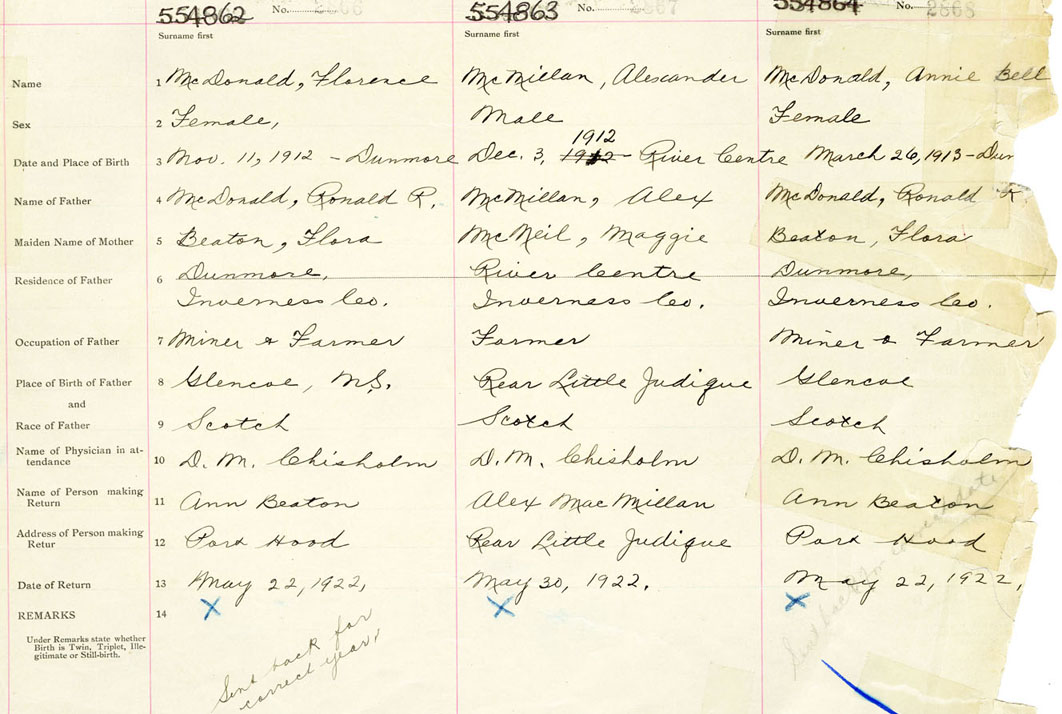 554862 No. 2866 554863 No. 2867 554864 No. 2868
Surname first Surname first Surname first
Name 1 McDonald, Florence McMillan, Alexander McDonald, Annie Bell
Sex 2 Female, Male Female
1912
Date and Place of Birth 3 Nov. 11, 1912 - Dunmore Dec. 3, 1912 - River Centre March 26, 1913 - Dun
Name of Father 4 McDonald, Ronald R. McMillan, Alex McDonald, Ronald R
Maiden Name of Mother 5 Beaton, Flora McNeil, Maggie Beaton, Flora
Residence of Father 6 Dunmore, River Centre Dunmore,
Inverness Co. Inverness Co. Inverness Co.
Occupation of Father 7 Miner & Farmer Farmer Miner & Farmer
Place of Birth of Father 8 Glencoe, N.S. Rear Little Judique Glencoe
and
Race of Father 9 Scotch Scotch Scotch
Name of Physician in at-
tendance 10 D. M. Chisholm D. M. Chisholm D. M. Chisholm
Name of Person making
Return 11 Ann Beaton Alex MacMillan Ann Beaton
Address of Person making
Retur 12 Port Hood Rear Little Judique Port Hood
Date of Return 13 May 22, 1922, May 30, 1922. May 22, 1922,
REMARKS 14 X X X
Under Remarks state whether
Birth is Twin, Triplet, Ille-
gitimate or Still-birth.
Sent back for
correct year.
Sent back for
correct date